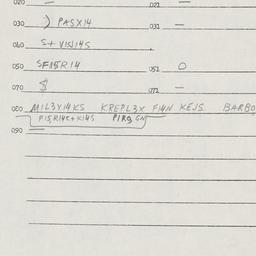 020 — 021 —
030 ) PASX14 031 —
040 S+ V1S14S
050 SF15R14 051 O
070 $ 071 —
080 M1L3Y14KS KREPL3X F14N KEJS BARBO
F15R14C+K14S P1R9 GN
090 —